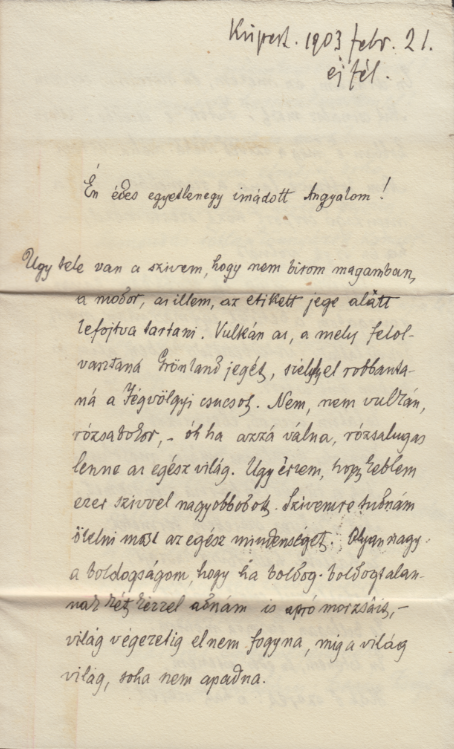 Kispest. 1903 febr. 21.
éjfél.
Én édes egyetlenegy imádott Angyalom!
Ugy tele van a szivem, hogy nem birom magamban,
a modor, az illem, az etikett jege alatt
lefojtva tartani. Vulkán az, a mely felol-
vasztaná Grönland jegét, széjjel robbanta-
ná a Jégvölgyi csucsot. Nem, nem vulkán,
rózsabokor, - óh ha azzá válna, rózsalugas
lenne az egész világ. Ugy érzem, hogy keblem
ezer szivvel nagyobbodott. Szivemre tudnám
ölelni most az egész mindenséget. Olyan nagy
a boldogságom, hogy ha boldog-boldogtalan-
nak két kézzel adnám is apró morzsáit, -
világ végezetig el nem fogyna, mig a világ
világ, soha nem apadna.